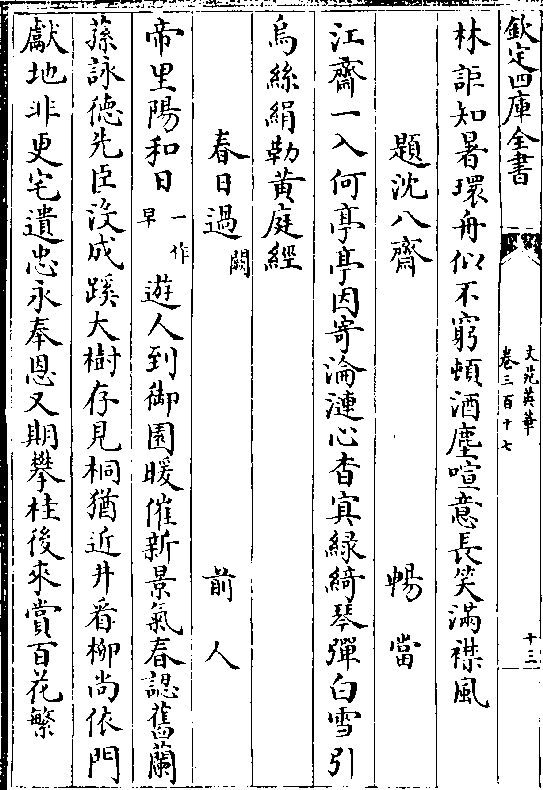 欽定四庫全書
文苑英華
卷三百十七
十三
林詎知暑環舟似不窮頓酒塵喧意長笑滿襟風
題沈八齋 暢當
江齋一入何亭亭因寄淪漣心杳冥緑綺琴彈白雪引
烏絲絹勒黄庭經
春日過闕 前人
帝里陽和日一作早遊人到御園暖催新景氣春認舊蘭
蓀詠德先臣沒成蹊大樹存見桐猶近井看栁尚依門
獻地非更宅遺忠永奉恩又期攀桂後來賞百花繁